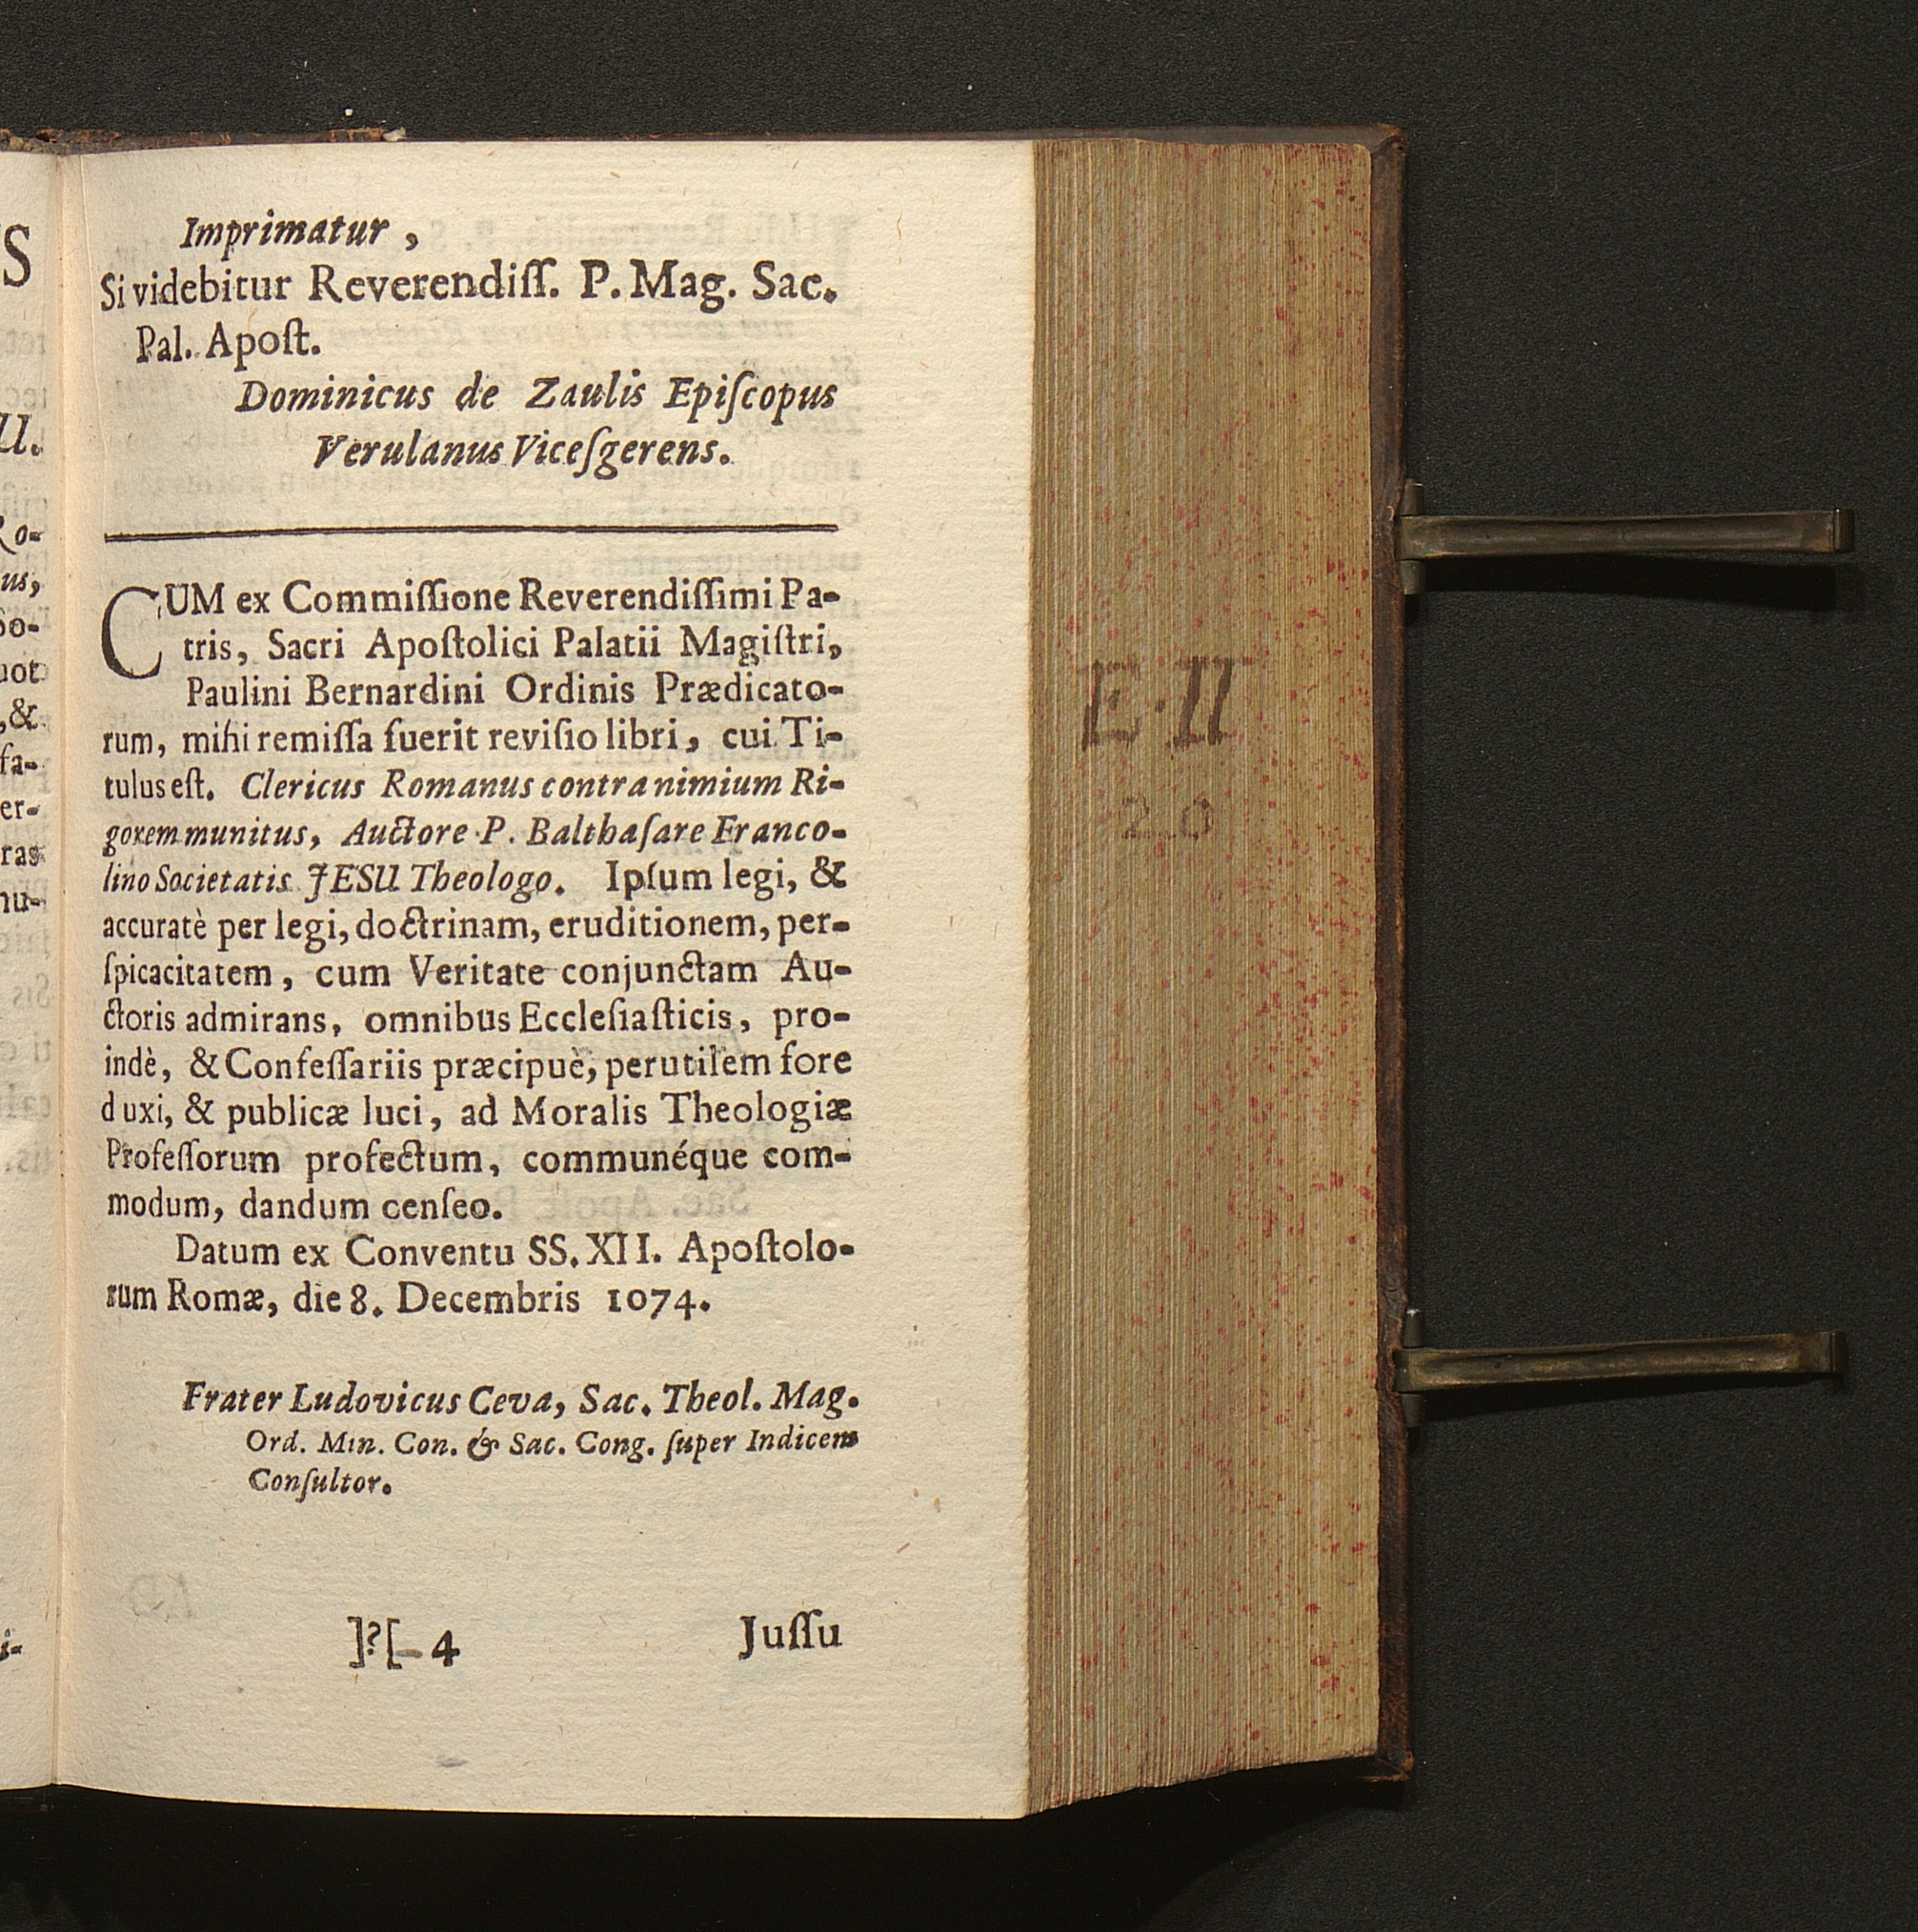 Imprimatur,
Si videbitur Reverendiſſ. P. Mag. Sac.
Pal. Apoſt.
Dominicus de Zaulis Epiſcopus
Verulanus Viceſgerens.
CUM ex Commiſſione Reverendiſſimi Pa-
tris, Sacri Apoſtolici Palatii Magiſtri,
Paulini Bernardini Ordinis Prædicato-
rum, mihi remiſſa fuerit reviſio libri, cui Ti-
tulus eſt. Clericus Romanus contra nimium Ri-
gorem munitus, Auctore P. Balthaſare Franco-
lino Societatis JESU Theologo. Ipſum legi, &
accuratè per legi, doctrinam, eruditionem, per-
ſpicacitatem, cum Veritate conjunctam Au-
ctoris admirans, omnibus Eccleſiaſticis, pro-
indè, & Confeſſariis præcipuè, perutilem fore
duxi, & publicæ luci, ad Moralis Theologiæ
Profeſſorum profectum, communéque com-
modum, dandum cenſeo.
Datum ex Conventu SS. XII. Apoſtolo-
rum Romæ, die 8. Decembris 1074.
Frater Ludovicus Ceva, Sac. Theol. Mag.
Ord. Min. Con. & Sac. Cong. ſuper Indicem
Conſultor.
]?[ 4 Juſſu
E. II
20